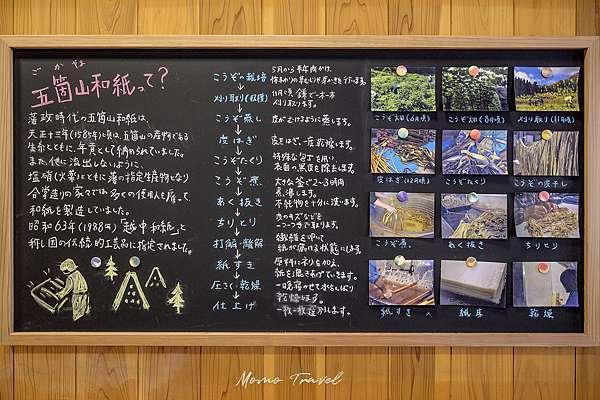 ごかやま
五箇山和紙って?
藩政時代の五箇山和紙は、
天正十三年(1585年)頃は、五箇山の産物である
生糸とともに、年貢として納められていました。
また、他に流出しないように、
塩硝(火薬)とともに藩の指定生産物となり
合掌造りの家々では多くの使用人も雇って
和紙を製造していました。
昭和63年(1988年)「越中和紙」と
称し国の伝統的工芸品に指定されました。
こうぞの栽培
刈り取り(収穫)
こうぞ蒸し
皮はぎ
こうぞたくり
こうぞ煮
あく抜き
ちりとり
打解・離解
紙すき
圧さく・乾燥
仕上げ
5月から半年かけ、
11月頃 鎌で一本一本
刈り取ります。
皮がむけるように蒸します。
皮をはぎ、一度乾燥します。
特殊な包丁を用い
表面の黒皮を除去します。
大きな釜で2~3時間
煮沸します。
不純物を十分に洗います。
皮のキズなどを
一つ一つ取ります。
繊維を叩いて
紙が漉ける状態にします。
原料にネリを加え、
紙を漉きあげていきます。
一晩寝かせて水をしぼり
乾燥します。
一枚一枚選別します。
こうぞ畑(6月頃)
こうぞ畑(8月頃)
刈り取り(11月頃)
皮はぎ(12月頃)
こうぞたくり
こうぞの皮干し
こうぞ煮
あく抜き
ちりとり
紙すき
紙床
乾燥
Momo Travel